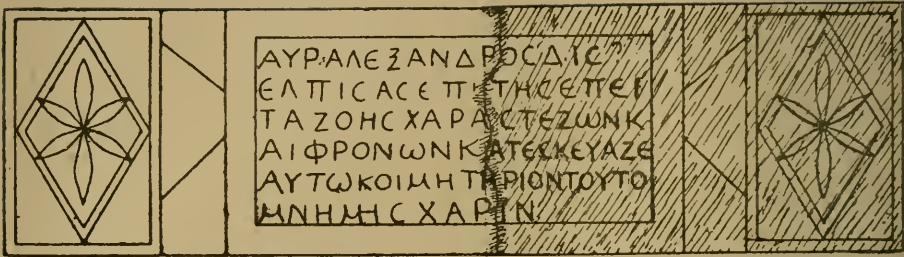 ΑΥΡ·ΑΛΕΞΑΝΔΡΟϹΔΙϹ
ΕΛΠΙϹΑϹΕΠΙΤΗϹΕΠΕΙ
ΤΑΖΟΗϹΧΑΡΑϹΤΕΖΩΝΚ
ΑΙΦΡΟΝΩΝΚΑΤΕϹΚΕΥΑΖΕ
ΑΥΤΩΚΟΙΜΗΤΗΡΙΟΝΤΟΥΤΟ
ΜΝΗΜΗϹΧΑΡΙΝ